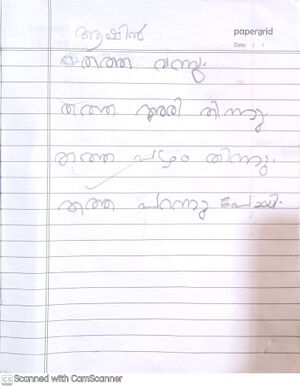 ആഷിൻ
papergrid
Date: / /
തത്ത വന്നു.
തത്ത മുന്തിരി തിന്നു.
തത്ത പഴം തിന്നു.
തത്ത പറന്നു പോയി.
CS Scanned with CamScanner